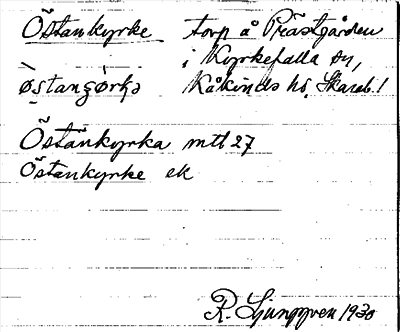 Östankyrke torp å Prästgården
i Kyrkefalla sn,
østangørkə Kåkinds hd, Skarab. l
Östankyrka mtl 27
Östankyrke ek
R. Ljunggren 1930